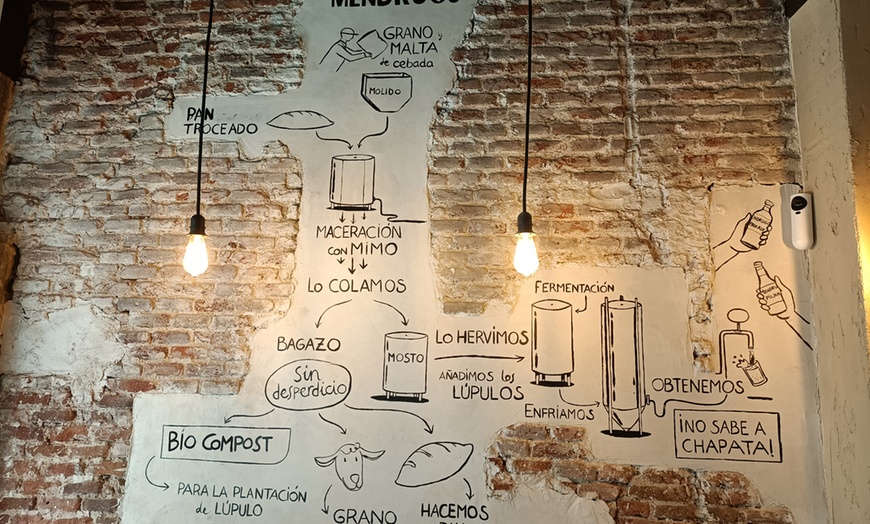 GRANO y
MALTA
de cebada
MOLIDO
PAN
TROCEADO
MACERACIÓN
con MIMO
Lo COLAMOS
BAGAZO
Sin
desperdicio
MOSTO
Lo HERVIMOS
AÑADIMOS los
LÚPULOS
FERMENTACIÓN
ENFRÍAMOS
OBTENEMOS
¡NO SABE A
CHAPATA!
BÍO COMPOST
PARA LA PLANTACIÓN
de LÚPULO
GRANO
HACEMOS